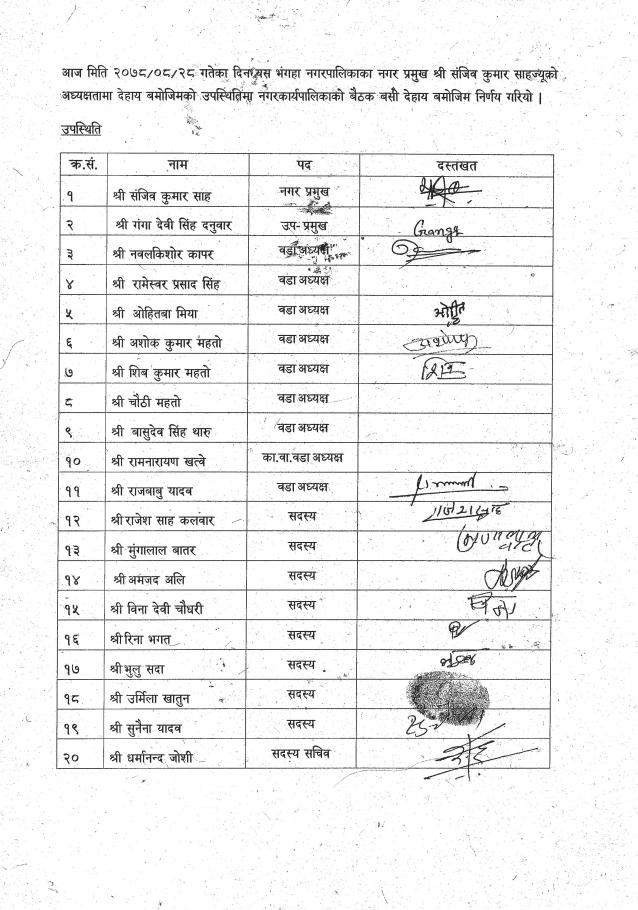 आज मिति २०७८/०८/२८ गतेका दिन यस भंगहा नगरपालिकाका नगर प्रमुख श्री संजिव कुमार साहज्यूको
अध्यक्षतामा देहाय बमोजिमको उपस्थितिमा नगरकार्यपालिकाको बैठक बसी देहाय बमोजिम निर्णय गरियो |
उपस्थिति
क्र.सं. नाम पद दस्तखत
१ श्री संजिव कुमार साह नगर प्रमुख
२ श्री गंगा देवी सिंह दनुवार उप- प्रमुख Ganga
३ श्री नवलकिशोर कापर वडा अध्यक्ष
४ श्री रामेस्वर प्रसाद सिंह वडा अध्यक्ष
५ श्री ओहितबा मिया वडा अध्यक्ष
६ श्री अशोक कुमार महतो वडा अध्यक्ष अशोक
७ श्री शिब कुमार महतो वडा अध्यक्ष
८ श्री चौठी महतो वडा अध्यक्ष
९ श्री बासुदेव सिंह थारु वडा अध्यक्ष
१० श्री रामनारायण खत्वे का.वा.वडा अध्यक्ष
११ श्री राजबाबु यादव वडा अध्यक्ष
१२ श्री राजेश साह कलवार सदस्य
१३ श्री मुंगालाल बातर सदस्य
१४ श्री अमजद अलि सदस्य
१५ श्री बिना देवी चौधरी सदस्य
१६ श्री रिना भगत सदस्य
१७ श्री भुलु सदा सदस्य
१८ श्री उर्मिला खातुन सदस्य
१९ श्री सुनैना यादव सदस्य
२० श्री धर्मानन्द जोशी सदस्य सचिव